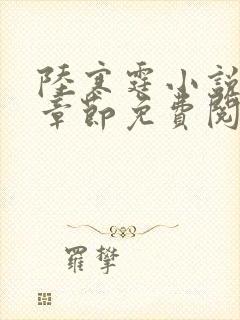 陸寒霆小說
章節免費閱
羅攀